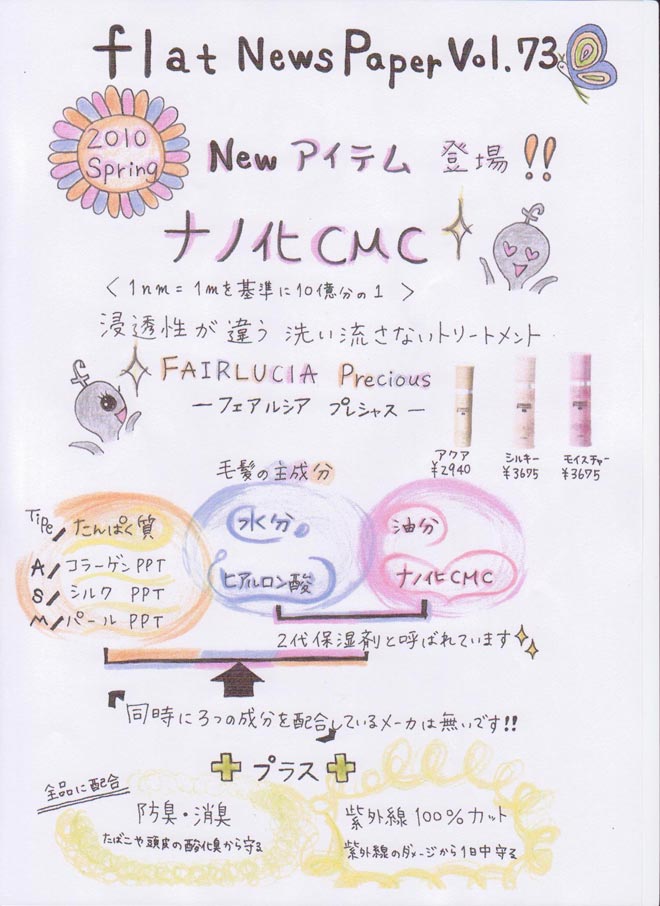 flat News Paper Vol.73
2010
Spring
New アイテム 登場!!
ナノ化CMC
f
〈 1nm = 1mを基準に10億分の1 〉
浸透性が違う 洗い流さないトリートメント
f
FAIRLUCIA Precious
ーフェアルシア プレシャスー
アクア
¥2940
シルキー
¥3675
モイスチャー
¥3675
毛髪の主成分
Tipe/ たんぱく質
A/コラーゲンPPT
S/シルク PPT
M/パール PPT
水分
ヒアルロン酸
油分
ナノ化CMC
2代保湿剤と呼ばれています
「同時に3つの成分を配合しているメーカは無いです!!」
+ プラス +
全品に配合
防臭・消臭
たばこや頭皮の酸化臭から守る
紫外線100%カット
紫外線のダメージから1日中守る